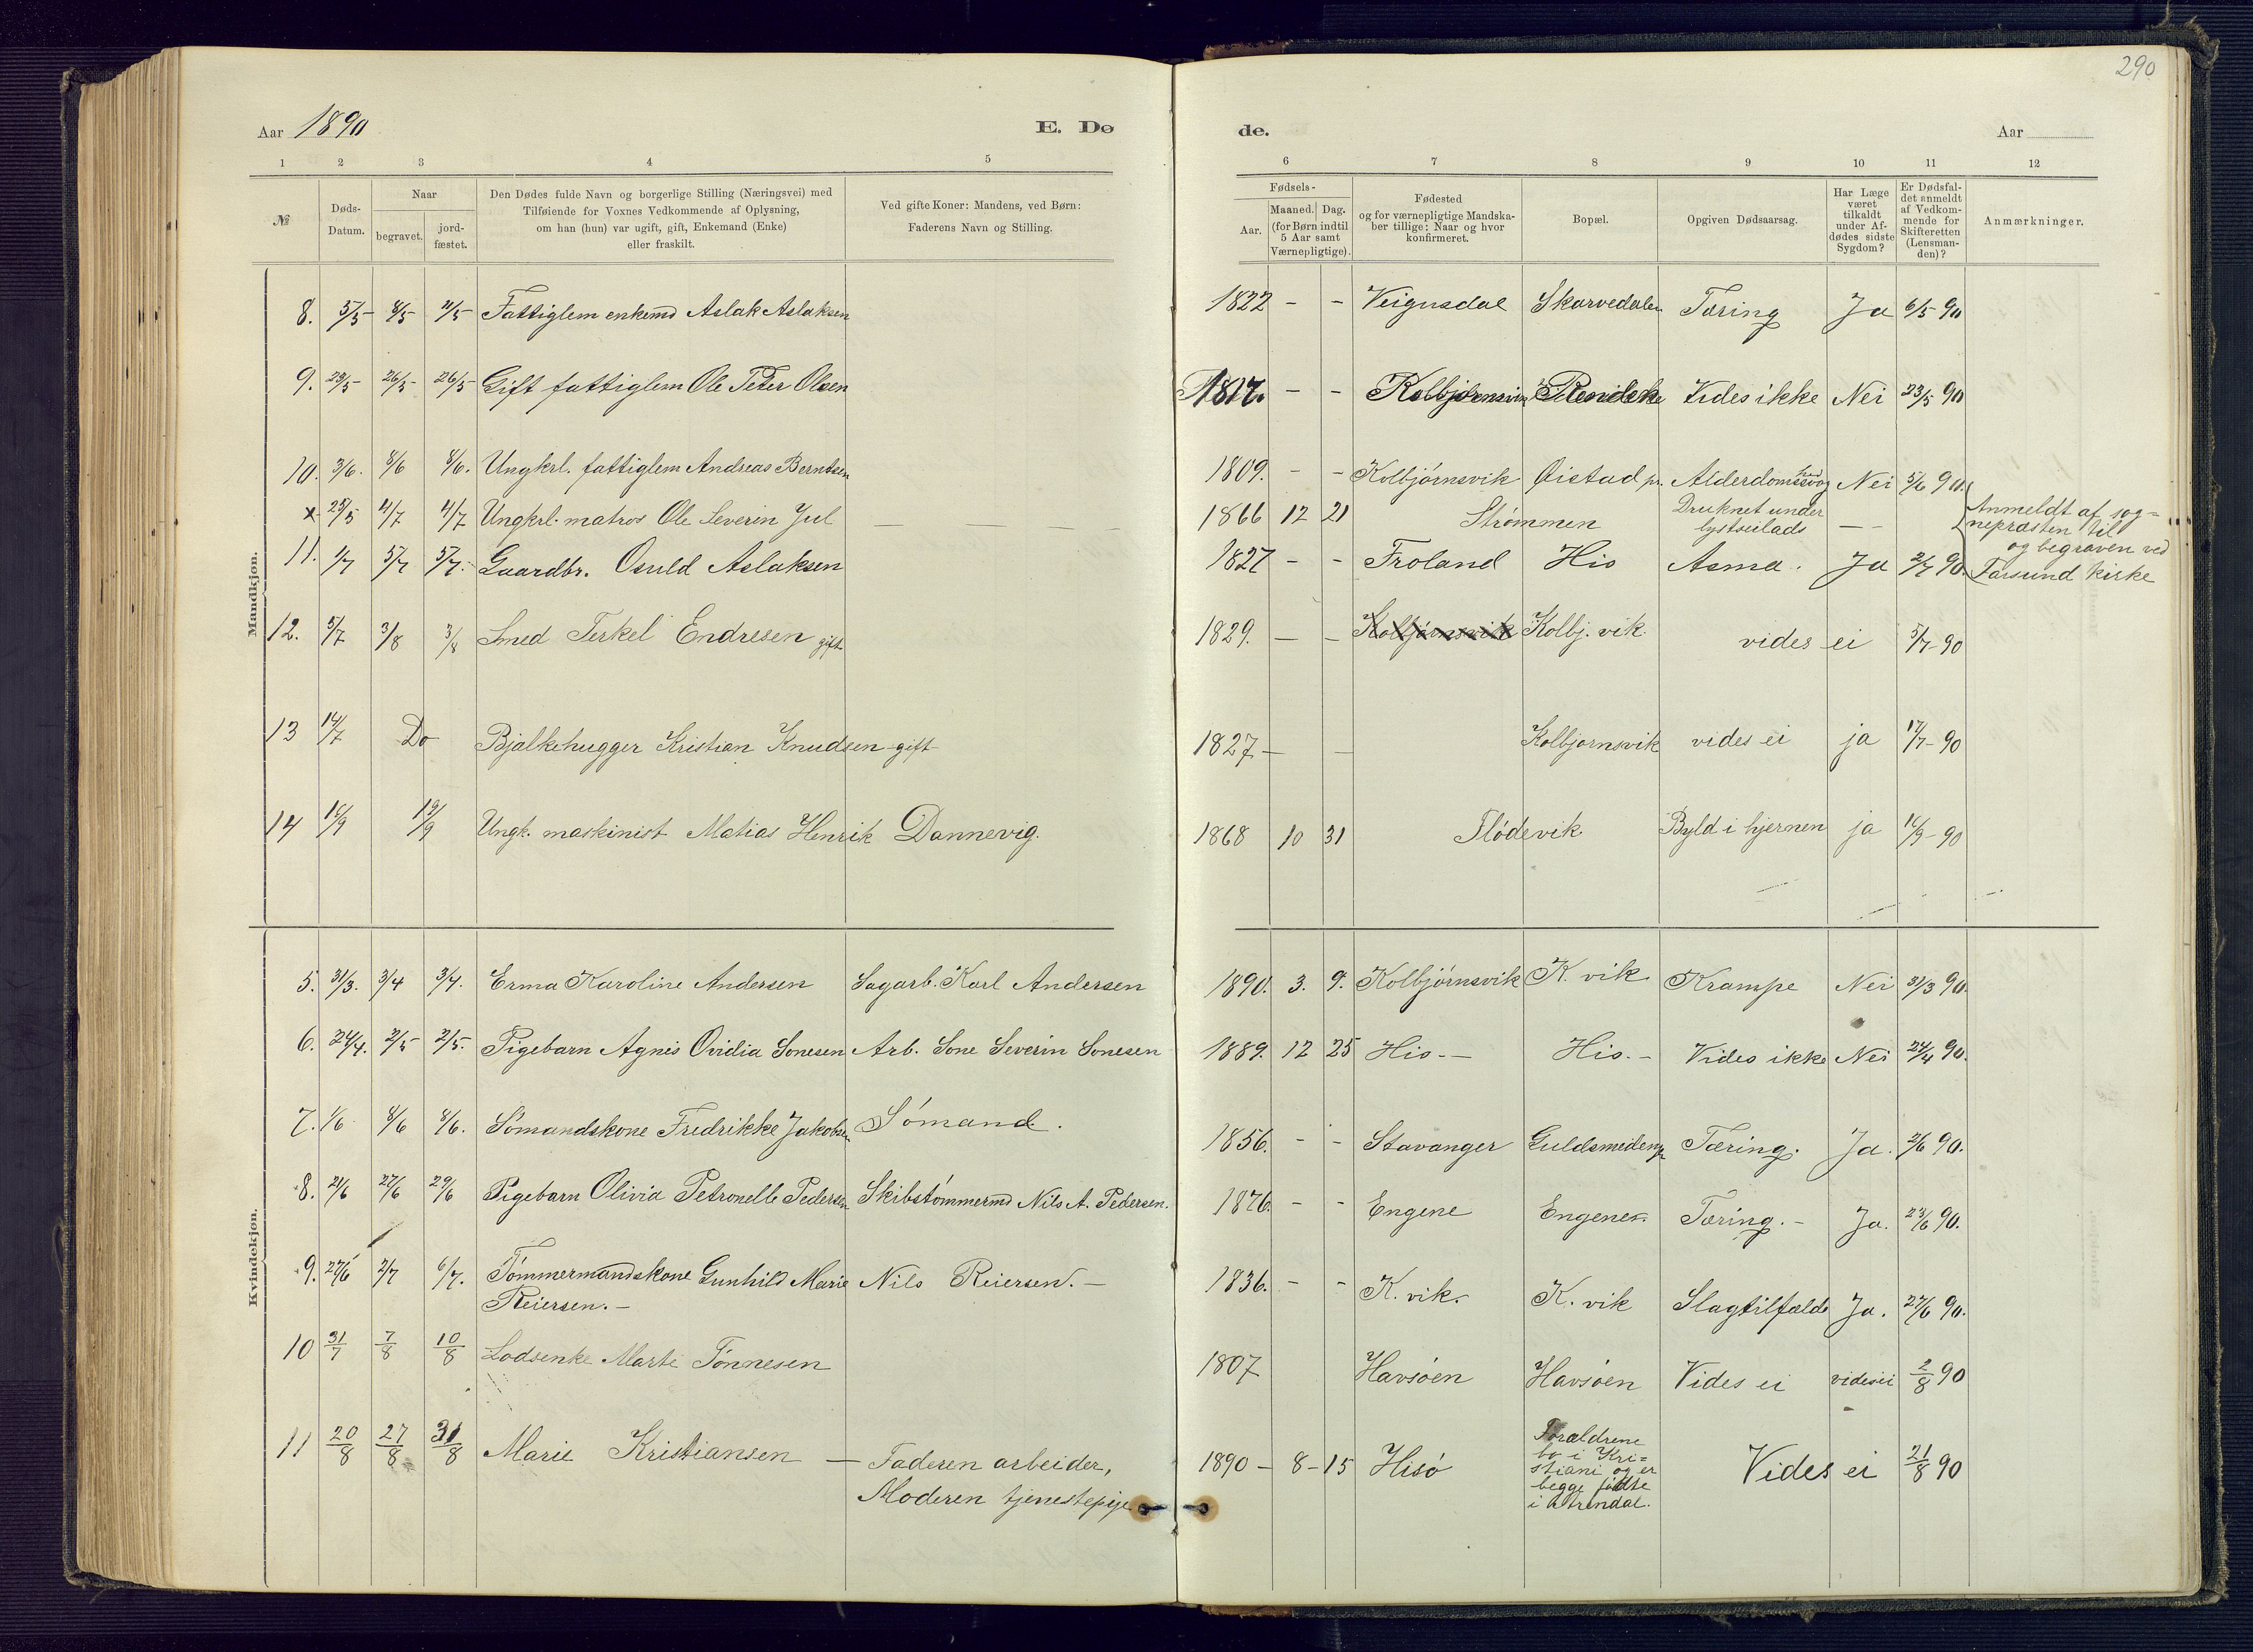 290
Aar 1890 E. Dø de. Aar
1 2 3 4 5 6 7 8 9 10 11 12
№
Døds-Datum.
Naar
begravet.
jord-fæstet.
Den Dødes fulde Navn og borgerlige Stilling (Næringsvei) med
Tilføiende for Voxnes Vedkommende af Oplysning,
om han (hun) var ugift, gift, Enkemand (Enke)
eller fraskilt.
Ved gifte Koner: Mandens, ved Børn:
Faderens Navn og Stilling.
Fødsels-
Aar.
Maaned. Dag.
(for Børn indtil
5 Aar samt
Værnepligtige).
Fødested
og for værnepligtige Mandska-
ber tillige: Naar og hvor
konfirmeret.
Bopæl.
Opgiven Dødsaarsag.
Har Læge
været
tilkaldt
under Af-
dødes sidste
Sygdom?
Er Dødsfal-
det anmeldt
af Vedkom-
mende for
Skifteretten
(Lensman-
den)?
Anmærkninger.
Mandkjøn.
8. 5/5 8/5 11/5 Fattiglem enkemd Aslak Aslaksen 1822 - - Veigusdal Skarvedalen Tæring Ja 6/5 90
9. 23/5 26/5 26/5 Gift fattiglem Ole Peter Olsen 1817. - - Kolbjørnsvik Vides ikke Nei 23/5 90
10. 3/6. 8/6 8/6. Ungkrl. fattiglem Andreas Berntsen 1809. - - Kolbjørnsvik Øistad pr. Alderdomssvaghed Nei 5/6 90.
x 25/5 4/7 4/7 Ungkrl. matros Ole Severin Jul — — — — 1866 12 21 Strømmen Druknet under
lystseilads — —
11. 1/7 5/7 5/7. Gaardbr. Osuld Aslaksen 1827 - - Froland His Asma. Ja 2/7 90.
Anmeldt af sog=
nepræsten til
og begraven ved
Farsund kirke
12. 5/7 3/8 3/8 Smed Terkel Endresen gift 1829. — — Kolbjørnsvik Kolbj. vik. vides ei 5/7-90
13 14/7 Do Bjalkehugger Kristian Knudsen - gift 1827 — — Kolbjørnsvik vides ei ja 17/7-90
14 16/9 19/9 Ungk. maskinist Matias Henrik Dannevig. 1868 10 31 Flødevik Byld i hjernen ja 16/9-90
Kvindekjøn.
5. 31/3. 3/4 3/4. Erma Karoline Andersen Sagarb. Karl Andersen 1890. 3. 9. Kolbjørnsvik K. vik Krampe Nei 31/3 90.
6. 24/4. 2/5 2/5. Pigebarn Agnis Ovidia Sonesen Arb. Sone Severin Sonesen 1889. 12 25 His - — His. - Vides ikke Nei 24/4 90.
7. 1/6 8/6 8/6. Sømandskone Fredrikke Jakobsen Sømand. 1856. - - Stavanger Guldsmedengen Tæring. Ja. 2/6 90.
8. 21/6 27/6 29/6 Pigebarn Olivia Petronelle Pedersen Skibstømmermd Nils A. Pedersen. 1876. - - Engene Engene. Tæring. - Ja. 23/6 90.
9. 27/6 2/7 6/7. Tømmermandskone Gunhild Marie
Reiersen. — Nils Reiersen. — 1836. - - K. vik. K. vik Slagtilfælde Ja. 27/6 90.
10 31/7 7/8 10/8 Lodsenke Marte Tønnesen 1807 Havsøen Havsøen Vides ei vides ei 2/8 90
11 20/8 27/8 31/8 Marie Kristiansen — Faderen arbeider,
Moderen tjenestepige 1890 - 8 - 15 Hisø Forældrene
bo i Kri=
stiani og er
begge fødte
i Arendal. Vides ei 21/8 90